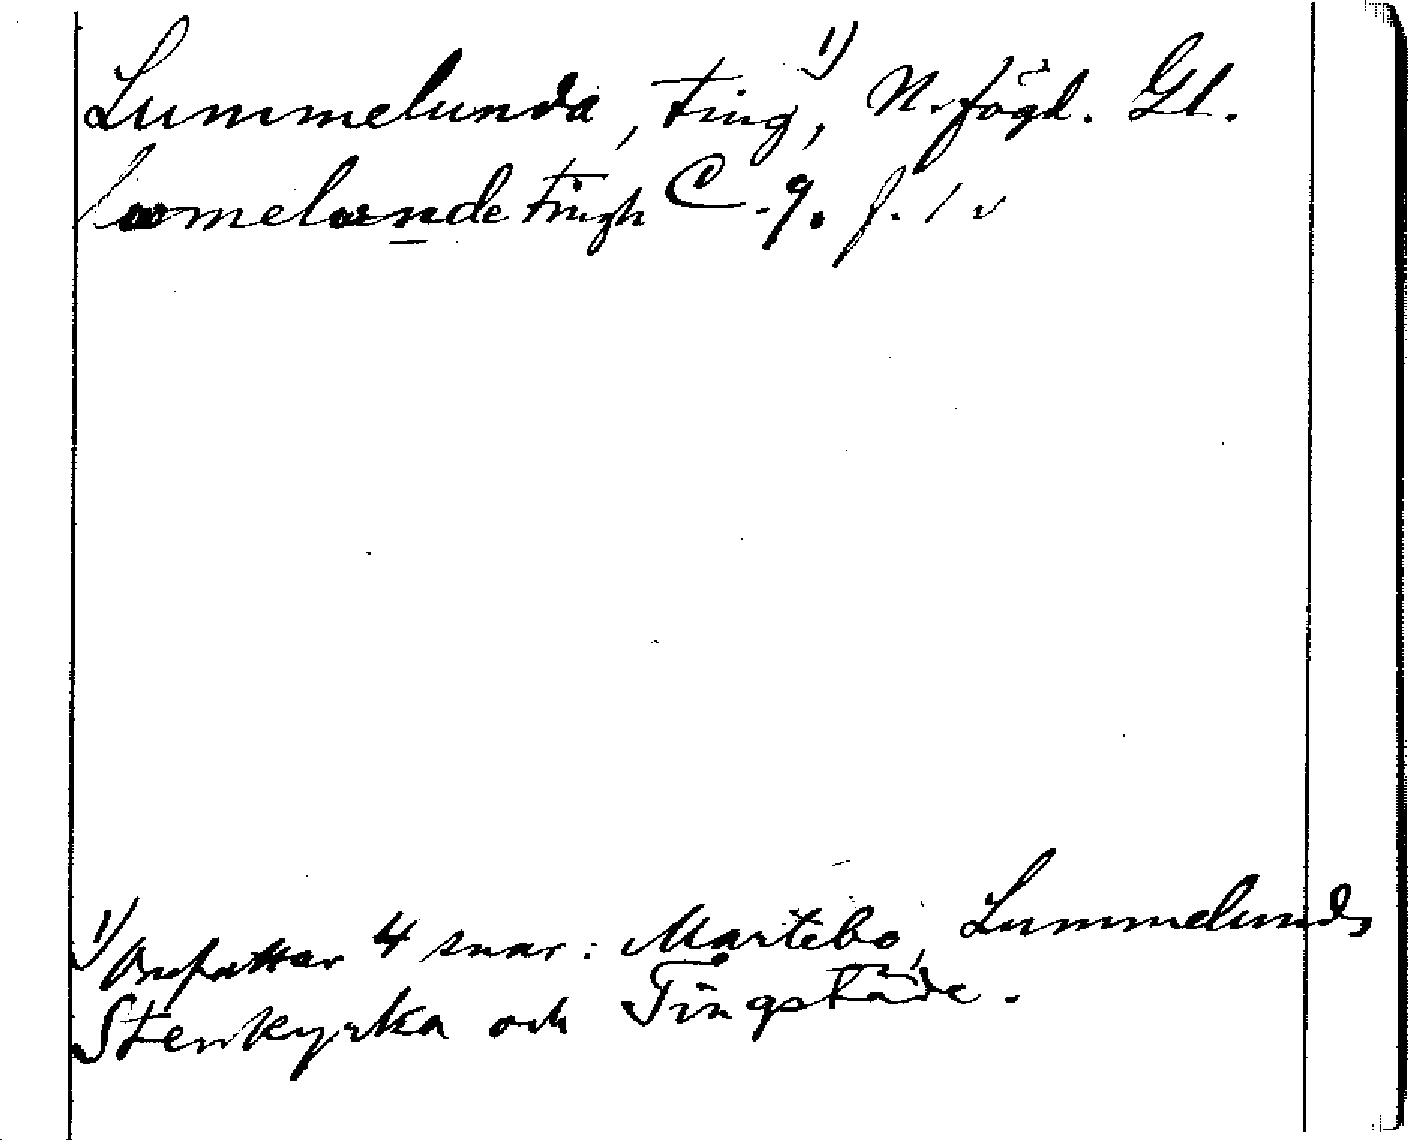 Lummelunda, ting,¹⁾ N. fögd. Gl.
lomelonde tingh C. 9. f. 1 v
¹⁾ Omfattar 4 snar: Martebo, Lummelunds
Stenkyrka och Tingstäde.